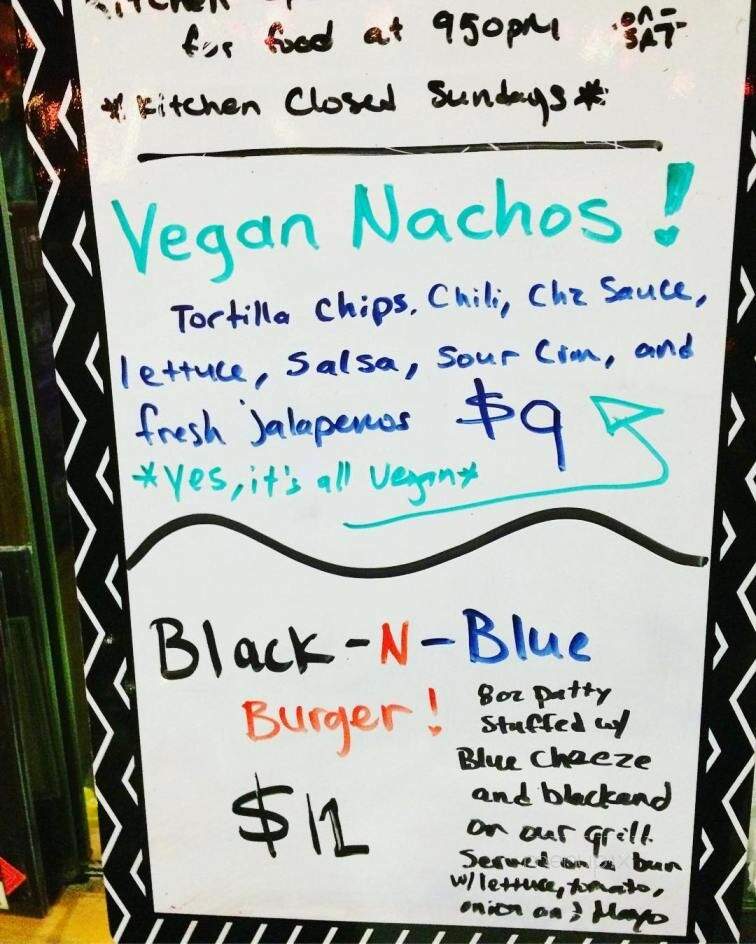 Kitchen
for food at 950pm on-SAT
*Kitchen Closed Sundays*
Vegan Nachos!
Tortilla Chips, Chili, Chz Sauce,
lettuce, Salsa, Sour Crm, and
fresh jalapenos $9
*Yes, it's all Vegan*
Black-N-Blue
Burger!
$12
8oz patty
Stuffed w/
Blue Cheeze
and blackend
on our grill.
Served on a bun
w/ lettuce, tomato,
onion and Mayo